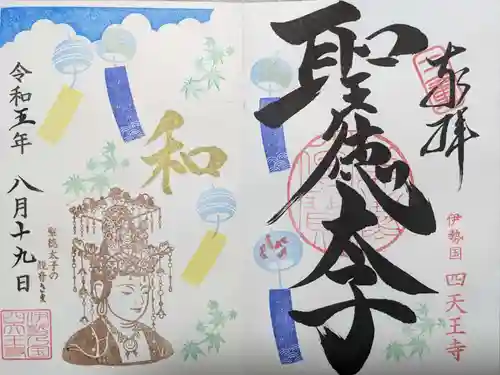 奉拝
聖徳太子
伊勢国 四天王寺
和
聖徳太子の
令和五年 八月十九日